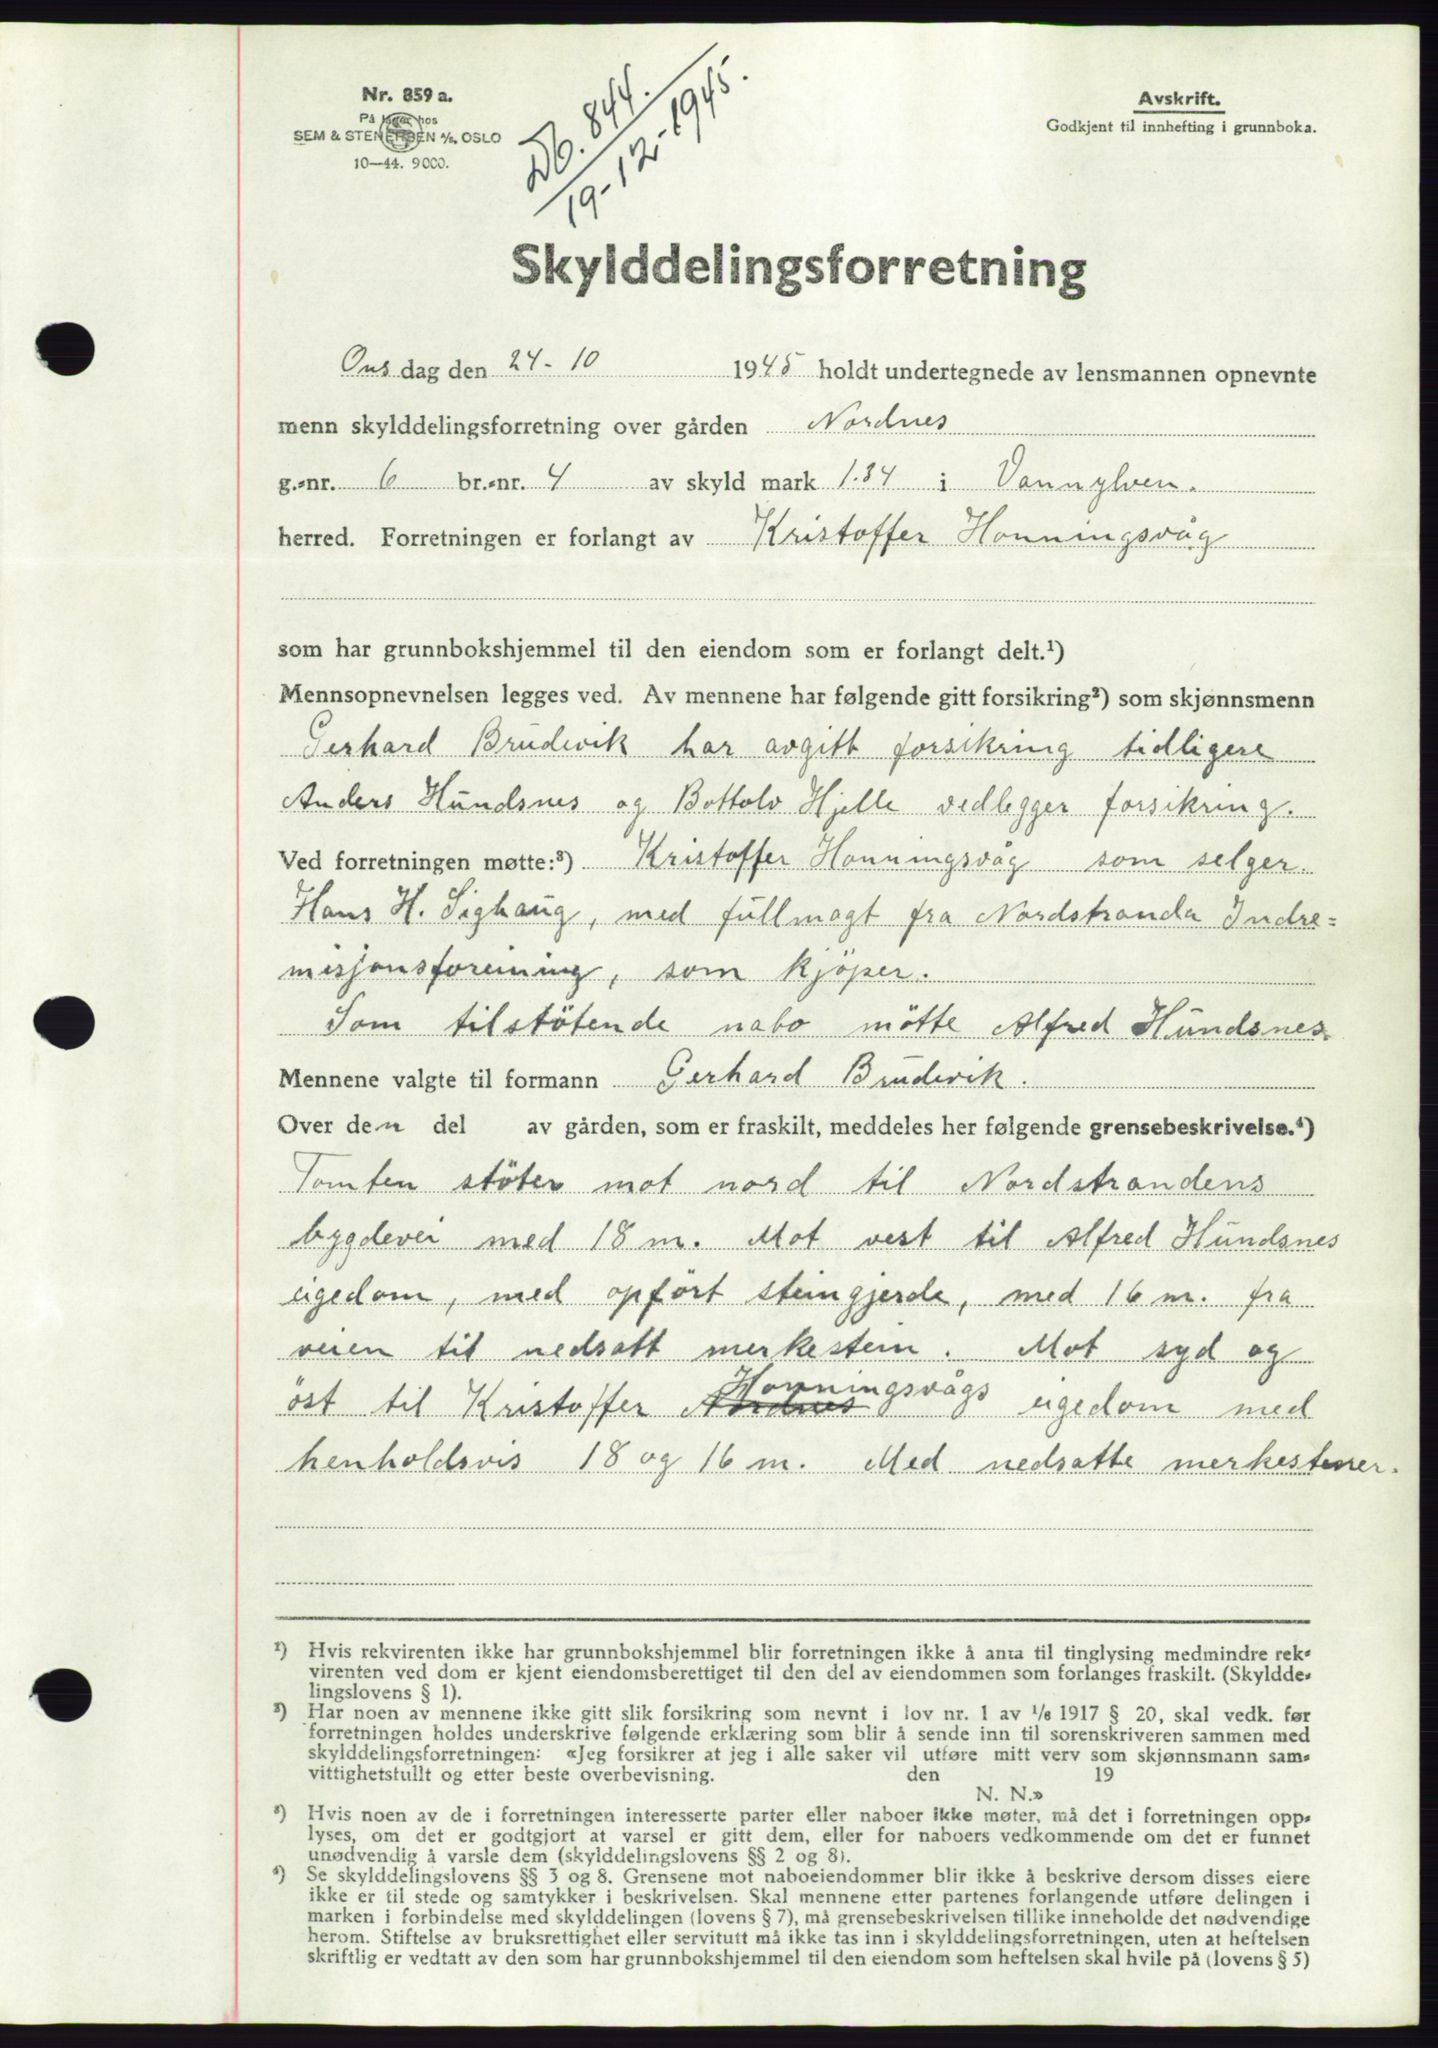 Nr. 859 a.
På lager hos
SEM & STENERSEN A/S, OSLO
10—44. 9000.
Db. 844.
19-12-1945.
Avskrift.
Godkjent til innhefting i grunnboka.
Skylddelingsforretning
Ons dag den 24-10 1945 holdt undertegnede av lensmannen opnevnte
menn skylddelingsforretning over gården Nordnes
g.=nr. 6 br.=nr. 4 av skyld mark 1.34 i Vannylven.
herred. Forretningen er forlangt av Kristoffer Honningsvåg
som har grunnbokshjemmel til den eiendom som er forlangt delt.¹)
Mennsopnevnelsen legges ved. Av mennene har følgende gitt forsikring²) som skjønnsmenn
Gerhard Brudevik har avgitt forsikring tidligere
Anders Hundsnes og Bottolv Hjelle vedlegger forsikring.
Ved forretningen møtte:³) Kristoffer Honningsvåg som selger.
Hans H. Sighaug, med fullmagt fra Nordstranda Indre=
misjonsforening, som kjöper.
Som tilstötende nabo mötte Alfred Hundsnes.
Mennene valgte til formann Gerhard Brudevik.
Over den del av gården, som er fraskilt, meddeles her følgende grensebeskrivelse.⁴)
Tomten stöter mot nord til Nordstrandens
bygdevei med 18 m. Mot vest til Alfred Hundsnes
eigedom, med opfört steingjerde, med 16 m. fra
veien til nedsatt merkestein. Mot syd og
öst til Kristoffer Nordnes Honningsvågs eigedom med
henholdsvis 18 og 16 m. Med nedsatte merkestener.
¹) Hvis rekvirenten ikke har grunnbokshjemmel blir forretningen ikke å anta til tinglysing medmindre rek=
virenten ved dom er kjent eiendomsberettiget til den del av eiendommen som forlanges fraskilt. (Skyldde=
lingslovens § 1).
²) Har noen av mennene ikke gitt slik forsikring som nevnt i lov nr. 1 av 1/6 1917 § 20, skal vedk. før
forretningen holdes underskrive følgende erklæring som blir å sende inn til sorenskriveren sammen med
skylddelingsforretningen: «Jeg forsikrer at jeg i alle saker vil utføre mitt verv som skjønnsmann sam=
vittighetsfullt og etter beste overbevisning. den 19
N. N.»
³) Hvis noen av de i forretningen interesserte parter eller naboer ikke møter, må det i forretningen opp=
lyses, om det er godtgjort at varsel er gitt dem, eller for naboers vedkommende om det er funnet
unødvendig å varsle dem (skylddelingslovens §§ 2 og 8).
⁴) Se skylddelingslovens §§ 3 og 8. Grensene mot naboeiendommer blir ikke å beskrive dersom disses eiere
ikke er til stede og samtykker i beskrivelsen. Skal mennene etter partenes forlangende utføre delingen i
marken i forbindelse med skylddelingen (lovens § 7), må grensebeskrivelsen tillike inneholde det nødvendige
herom. Stiftelse av bruksrettighet eller servitutt må ikke tas inn i skylddelingsforretningen, uten at heftelsen
skriftlig er vedtatt av den som har grunnbokshjemmel til den eiendom som heftelsen skal hvile på (lovens § 5)